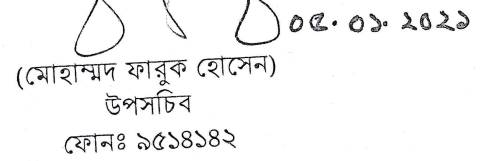 ০৫.০১.২০২১
(মোহাম্মদ ফারুক হোসেন)
উপসচিব
ফোনঃ ৯৫১৪১৪২